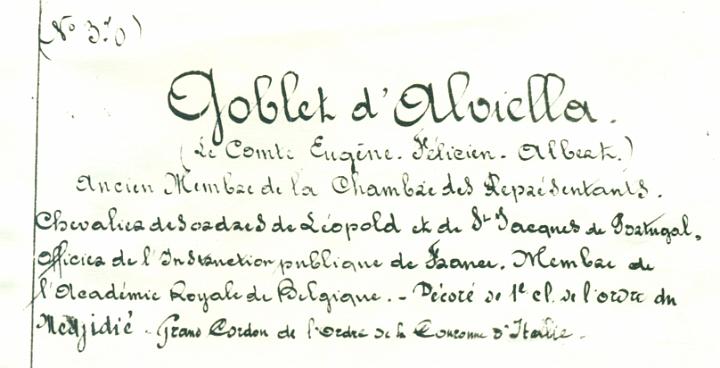 (Nº 370)
Goblet d'Alviella.
(Le Comte Eugène. Félicien. Albert.)
Ancien Membre de la Chambre des Représentants.
Chevalier des ordres de Léopold et de St Jacques de Portugal,
Officier de l'Instruction publique de France. Membre de
l'Académie Royale de Belgique. - Décoré de 1e cl. de l'ordre du
Medjidié - Grand Cordon de l'Ordre de la Couronne d'Italie.